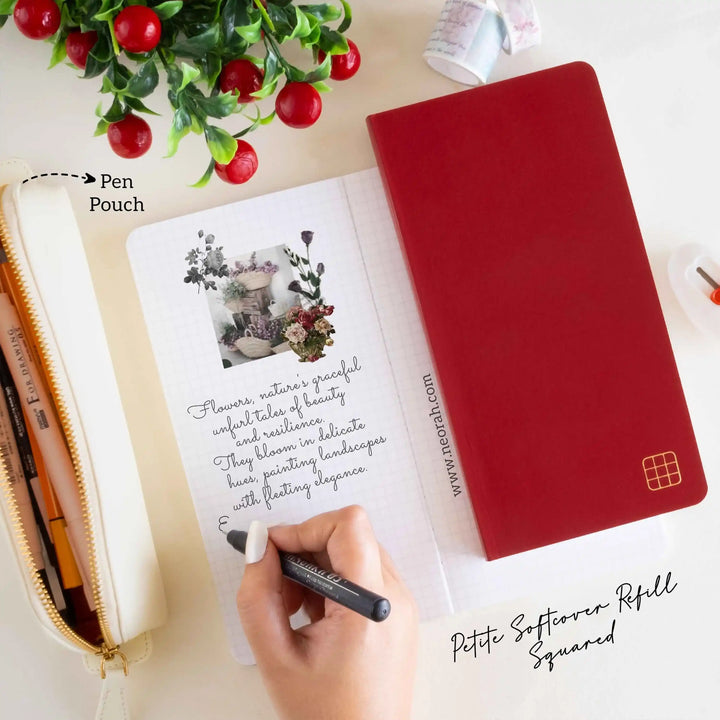 Pen
Pouch
FOR DRAWING
Flowers, nature's graceful
unfurl tales of beauty
and resilience.
They bloom in delicate
hues, painting landscapes
with fleeting elegance.
E
www.neorah.com
Petite Softcover Refill
Squared